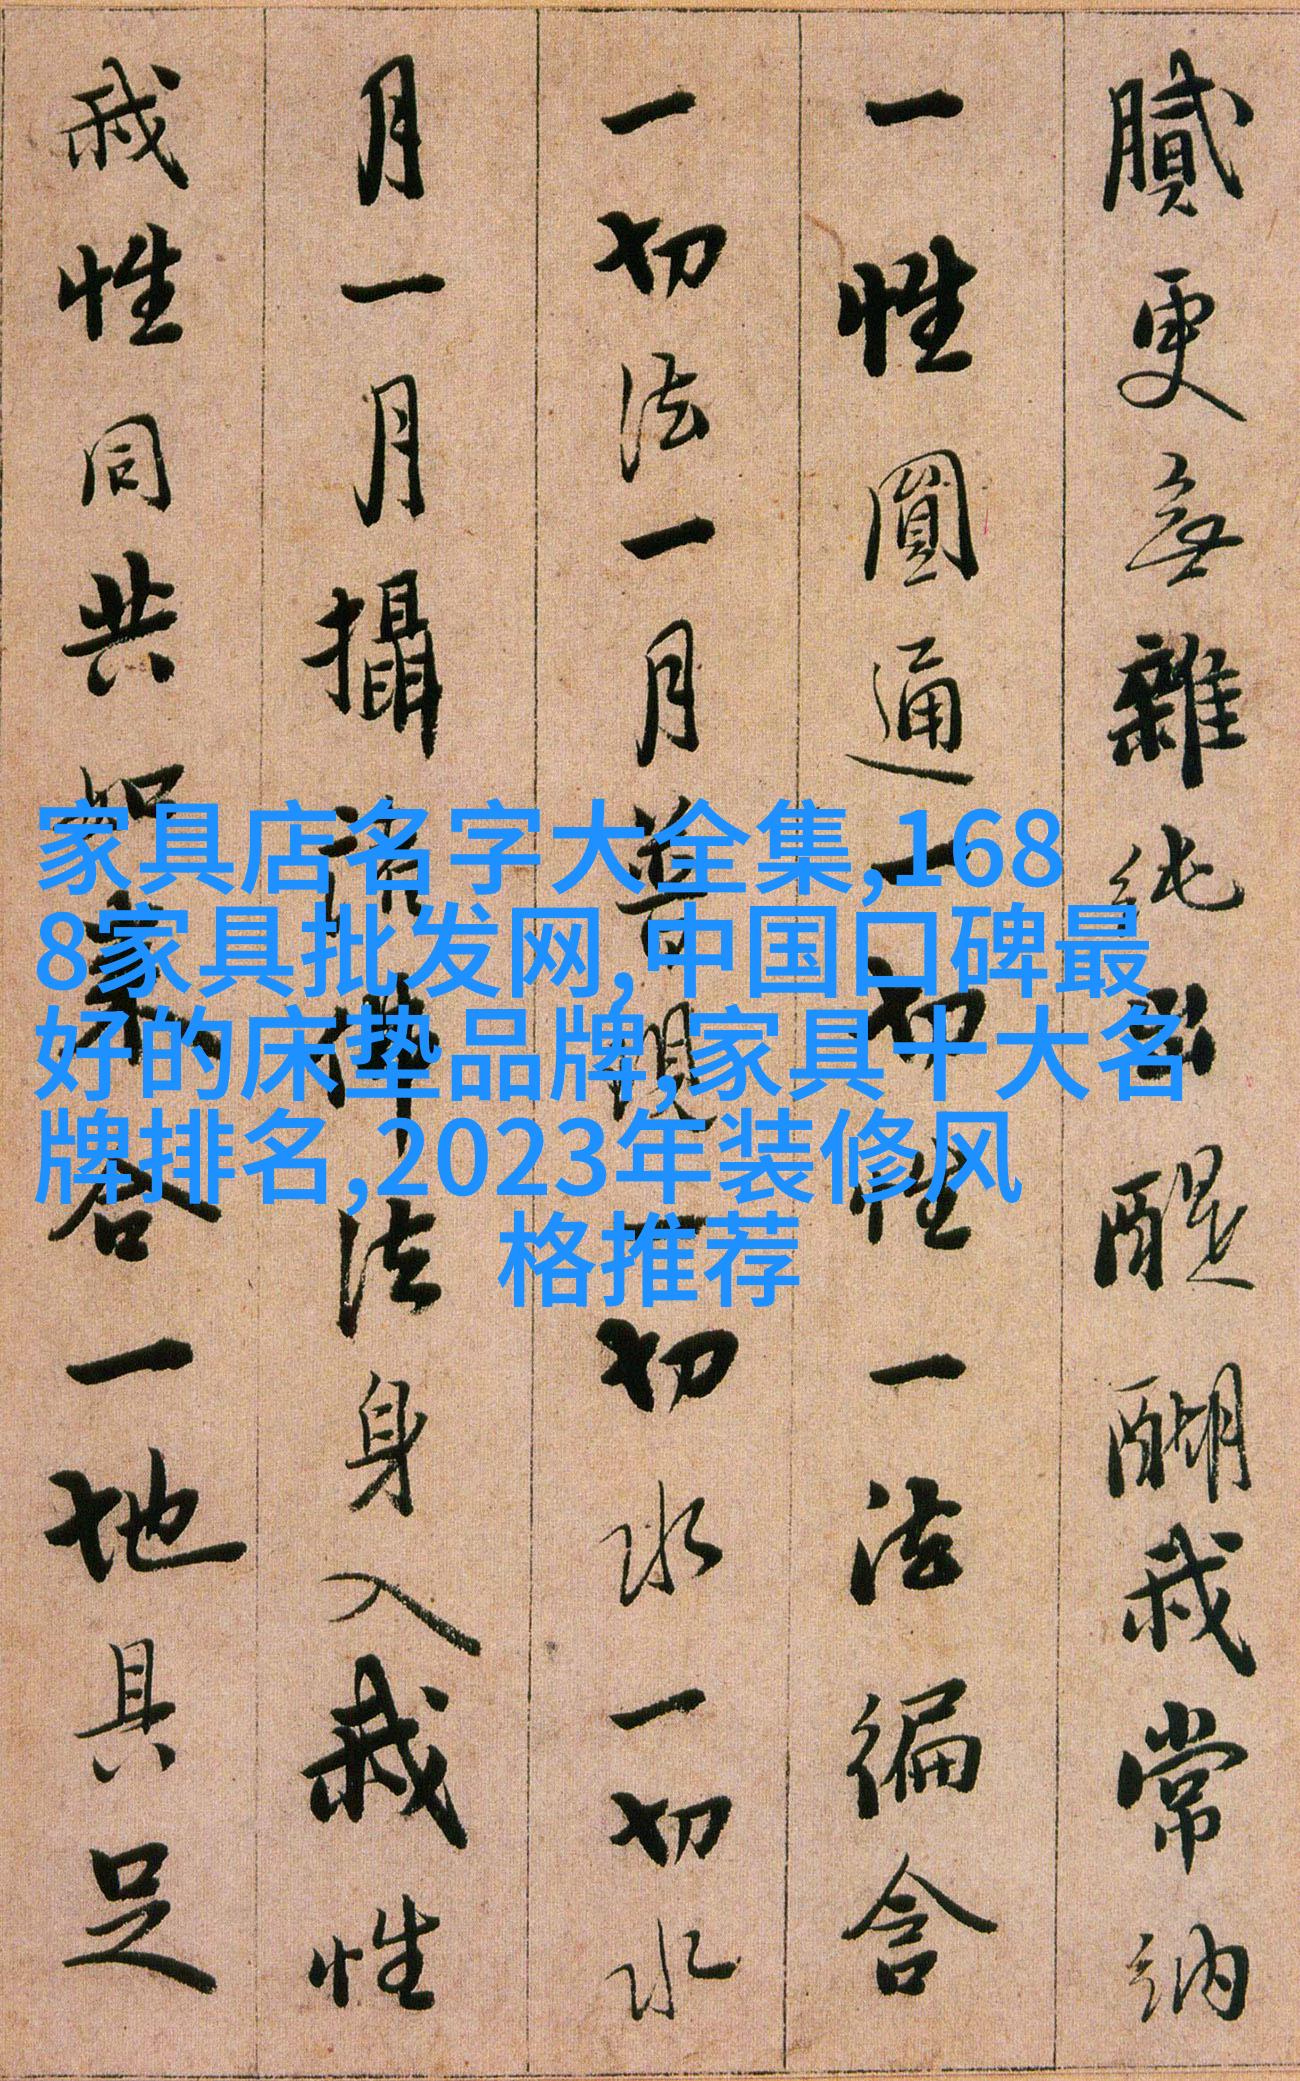 膩更無雜純出醍醐我常納
一性圓通一切性一法徧含
一切法一月普現一切水一切水
月一月攝諸佛法身入我性
我性同共如來合一地具足
家具店名字大全集,168
8家具批发网,中国口碑最
好的床垫品牌,家具十大名
牌排名,2023年装修风
格推荐